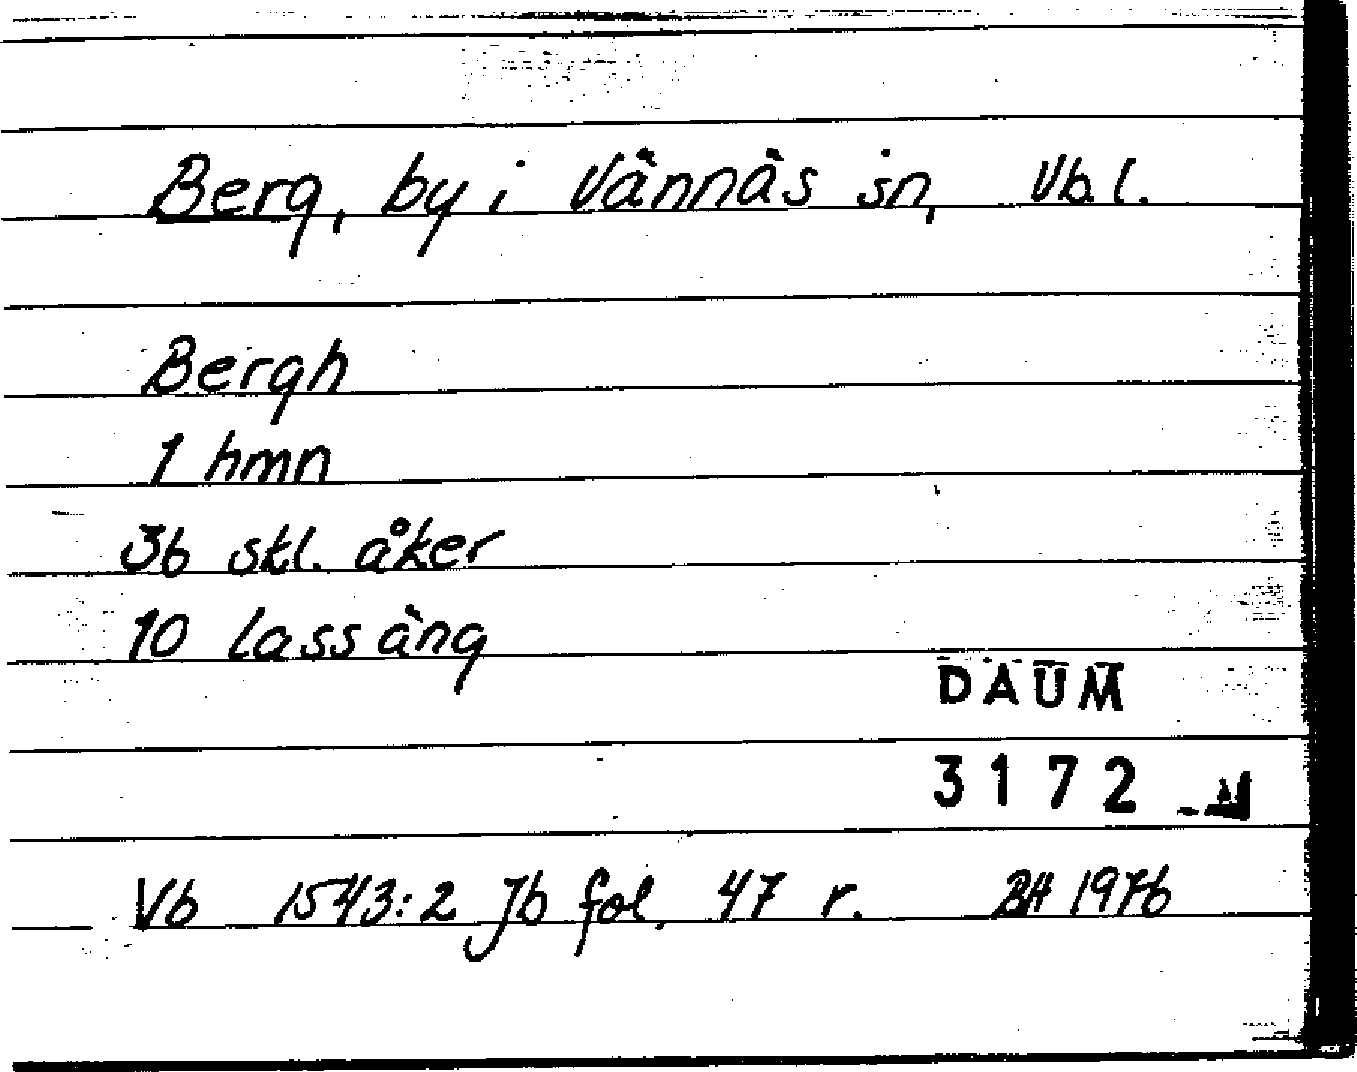 Berg, by i Vännäs sn, Vb. l.
Bergh
1 hmn
36 skl. åker
10 lass äng
DAUM
3172
Vb 1543:2 Jb fol. 47 r. BH 1976